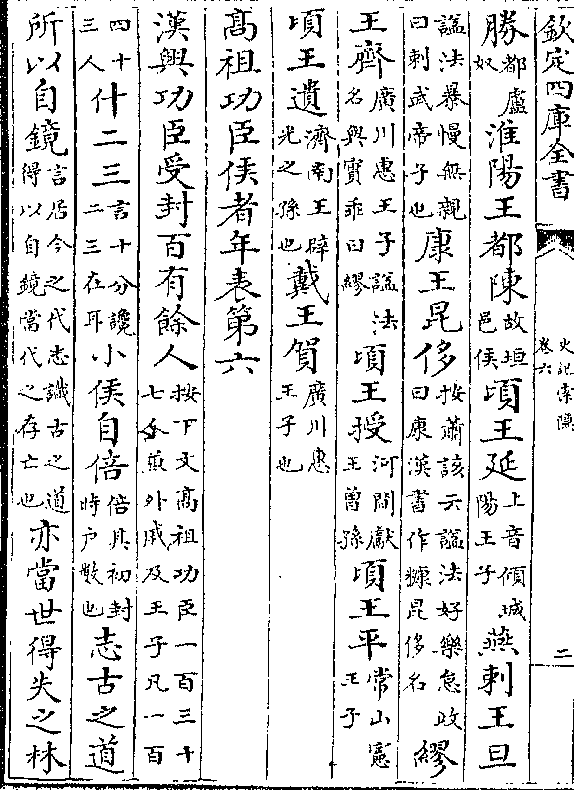 欽定四庫全書
史記索隱
卷六
二
勝都盧奴淮陽王都陳故垣邑侯頃王延上音傾城陽王子燕刺王旦
諡法暴慢無親曰刺武帝子也康王昆侈按蕭該云諡法好樂怠政曰康漢書作糠昆侈名繆
王齊廣川惠王子諡法名與實乖曰繆頃王授河間獻王曾孫頃王平常山憲王子
頃王遺濟南王辟光之孫也戴王賀廣川惠王子也
高祖功臣侯者年表第六
漢興功臣受封百有餘人按下文高祖功臣一百三十七人兼外戚及王子凡一百
四十三人什二三言十分纔二三在耳小侯自倍倍其初封時戶數也志古之道
所以自鏡言居今之代志識古之道得以自鏡當代之存亡也亦當世得失之林